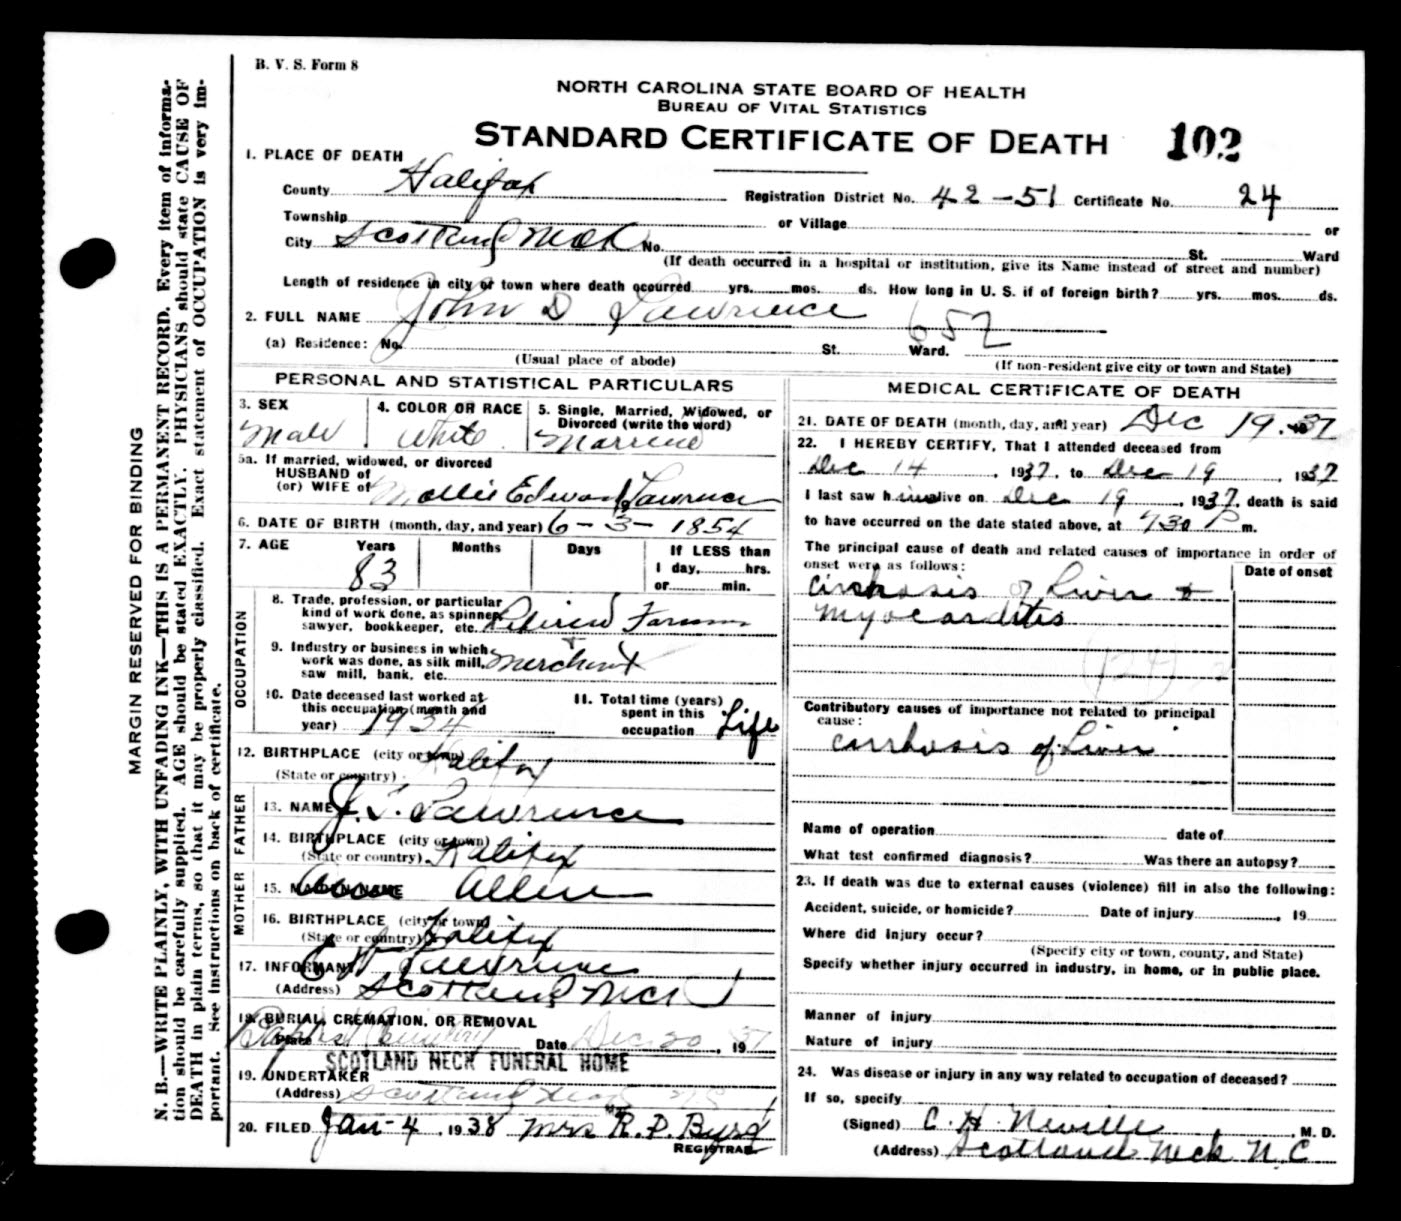 B. V. S. Form 8
NORTH CAROLINA STATE BOARD OF HEALTH
BUREAU OF VITAL STATISTICS
STANDARD CERTIFICATE OF DEATH 102
1. PLACE OF DEATH
County Halifax Registration District No. 42-51 Certificate No. 24
Township or Village or
City Scotland Neck No. St. Ward
(If death occurred in a hospital or institution, give its Name instead of street and number)
Length of residence in city or town where death occurred yrs. mos. ds. How long in U. S. if of foreign birth? yrs. mos. ds.
2. FULL NAME John D Lawrence 652
(a) Residence: No. St. Ward.
(Usual place of abode) (If non-resident give city or town and State)
PERSONAL AND STATISTICAL PARTICULARS
3. SEX 4. COLOR OR RACE 5. Single, Married, Widowed, or
Divorced (write the word)
Male White Married
5a. If married, widowed, or divorced
HUSBAND of
(or) WIFE of Mollie Edwards Lawrence
6. DATE OF BIRTH (month, day, and year) 6-3-1854
7. AGE Years Months Days If LESS than
1 day, hrs.
83 or min.
OCCUPATION
8. Trade, profession, or particular
kind of work done, as spinner,
sawyer, bookkeeper, etc. Retired Farmer
9. Industry or business in which
work was done, as silk mill, + Merchant
saw mill, bank, etc.
10. Date deceased last worked at
this occupation (month and
year) 1934
11. Total time (years)
spent in this
occupation Life
12. BIRTHPLACE (city or town) Halifax
(State or country)
FATHER
13. NAME J. T. Lawrence
14. BIRTHPLACE (city or town)
(State or country) Halifax
MOTHER
15. MAIDEN NAME Allen
16. BIRTHPLACE (city or town)
(State or country) Halifax
17. INFORMANT Lawrence
(Address) Scotland Neck
18. BURIAL, CREMATION, OR REMOVAL
Place Baptist Cemetery Date Dec 20, 1937
SCOTLAND NECK FUNERAL HOME
19. UNDERTAKER
(Address) Scotland Neck N C
20. FILED Jan-4, 1938 Mrs R. P. Byrd
REGISTRAR
MEDICAL CERTIFICATE OF DEATH
21. DATE OF DEATH (month, day, and year) Dec 19-37
22. I HEREBY CERTIFY, That I attended deceased from
Dec 14, 1937, to Dec 19 1937
I last saw him alive on Dec 19, 1937, death is said
to have occurred on the date stated above, at 730 P m.
The principal cause of death and related causes of importance in order of
onset were as follows: Date of onset
Cirrhosis of Liver +
Myocarditis
Contributory causes of importance not related to principal
cause:
Cirrhosis of Liver
Name of operation date of
What test confirmed diagnosis? Was there an autopsy?
23. If death was due to external causes (violence) fill in also the following:
Accident, suicide, or homicide? Date of injury , 19
Where did injury occur?
(Specify city or town, county, and State)
Specify whether injury occurred in industry, in home, or in public place.
Manner of injury
Nature of injury
24. Was disease or injury in any way related to occupation of deceased?
If so, specify
(Signed) C. H. Neville, M. D.
(Address) Scotland Neck N.C
MARGIN RESERVED FOR BINDING
N. B.—WRITE PLAINLY, WITH UNFADING INK—THIS IS A PERMANENT RECORD. Every item of informa-
tion should be carefully supplied. AGE should be stated EXACTLY. PHYSICIANS should state CAUSE OF
DEATH in plain terms, so that it may be properly classified. Exact statement of OCCUPATION is very im-
portant. See instructions on back of certificate.